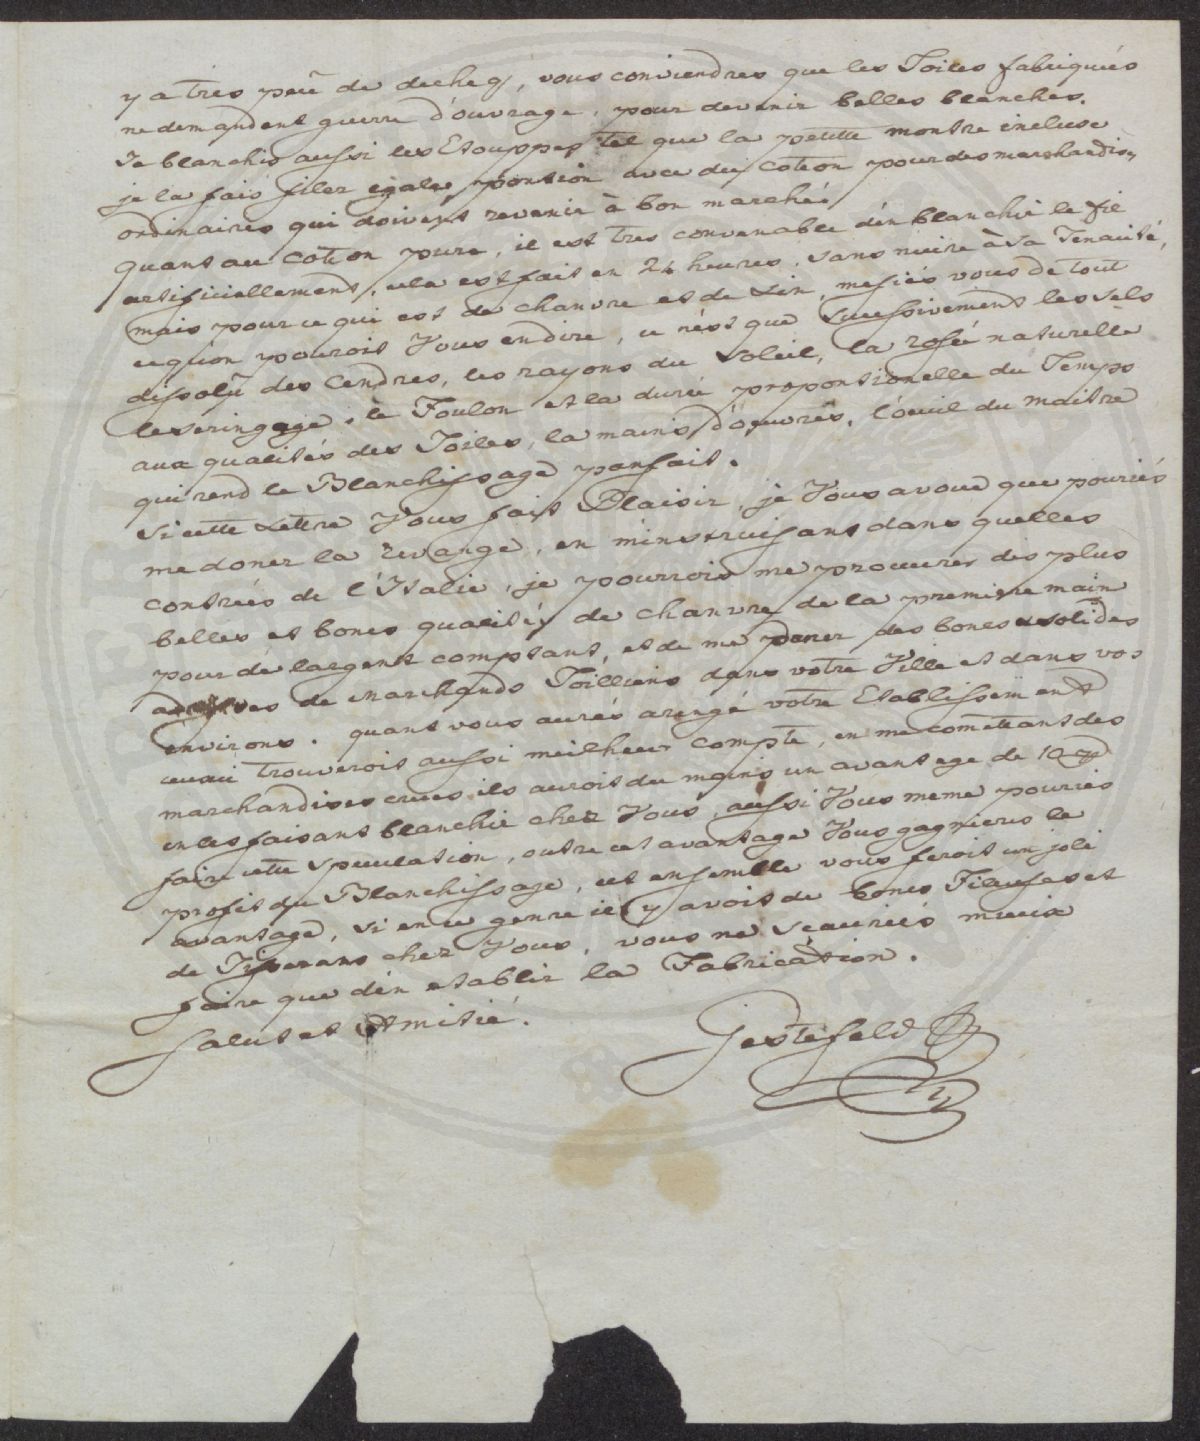 y a très peu de deche, vous conviendres que les Toiles fabriquées
ne demandent guerre d'ouvrage, pour devenir belles blanches.
Je blanchis aussi les Etouppes tel que la petitte montre incluse
je la fais filer egale portion avec du Coton pour des marchandises
ordinaires qui doivent revenir à bon marché.
Quant au Coton pure, il est tres convenable d'en blanchir le fil
artificiellement, cela est fait en 24 heures, sans nuire à sa Tenacité,
mais pour ce qui est de chanvre et de Lin, mefiés vous de tout
ce qu'on pouroit Vous en dire, ce n'est que successivement les sels
dissolu des Cendres, les rayons du Soleil, la rosée naturelle
le seringage, le Foulon et la durée proportionelle du Temps
aux qualités des Toiles, la mains d'oeuvres, l'oeuil du maitre
qui rend le Blanchissage parfait.
Si cette Lettre Vous fait Plaisir, je Vous avoue que pourriés
me doner la revange, en m'instruisant dans quelles
contrées de l'Italie, je pourrois me procurer des plus
belles et bones qualités de chanvre de la premiere main
pour de largent comptant, et de me doner des bones et solides
adresses de marchands Toilliers dans votre Ville et dans vos
environs. quant vous aurés arengé votre Etablissement
ceuxci trouverois aussi meilheur compte, en me comettant des
marchandises crues, ils aurois du moins un avantage de 10
en les faisant blanchir chez Vous, aussi Vous meme pourries
faire cette Speculation, outre cet avantage Vous gagnieres le
profit du Blanchissage, cet ensemble vous feroit un joli
avantage, si en ce genre il y avoit de bones Fileuses et
de Tisserans chez Vous, vous ne sçauriés mieux
faire que d'en etablir la Fabrication.
Salut et Amitié.
Gestefeld